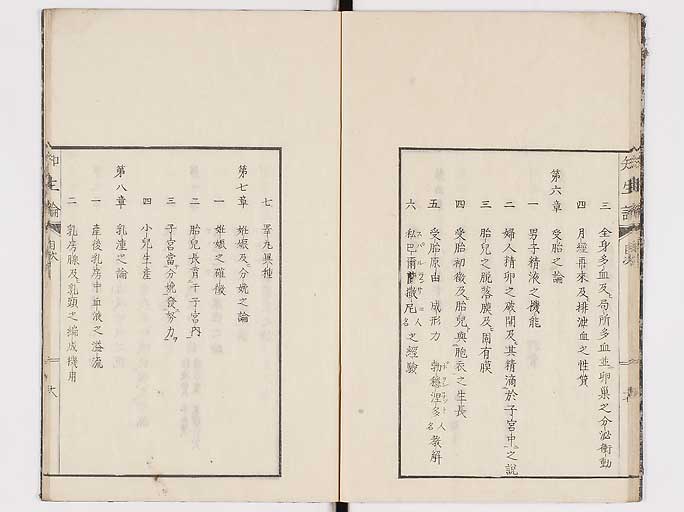 三 全身多血及局所多血並卵巣之分泌衝動
四 月經再來及排泄血之性質
第六章 受胎之論
一 男子精液之機能
二 婦人精卵之破開及其精滴於子宮中之說
三 胎兒之脫落膜及固有膜
四 受胎初徵及胎兒與胞衣之生長
五 受胎原由 成形力 勃穏涅多人名教解
六 私巴爾蘭撒尼人名之經驗
七 睾丸異種
第七章 姙娠及分娩之論
一 姙娠之確徵
二 胎兒長育于子宮內
三 子宮當分娩發努力
四 小兒生產
第八章 乳湩之論
一 產後乳房中血液之溢流
二 乳房腺及乳頭之搆成機用
知生論 目次
知生論 目次 六